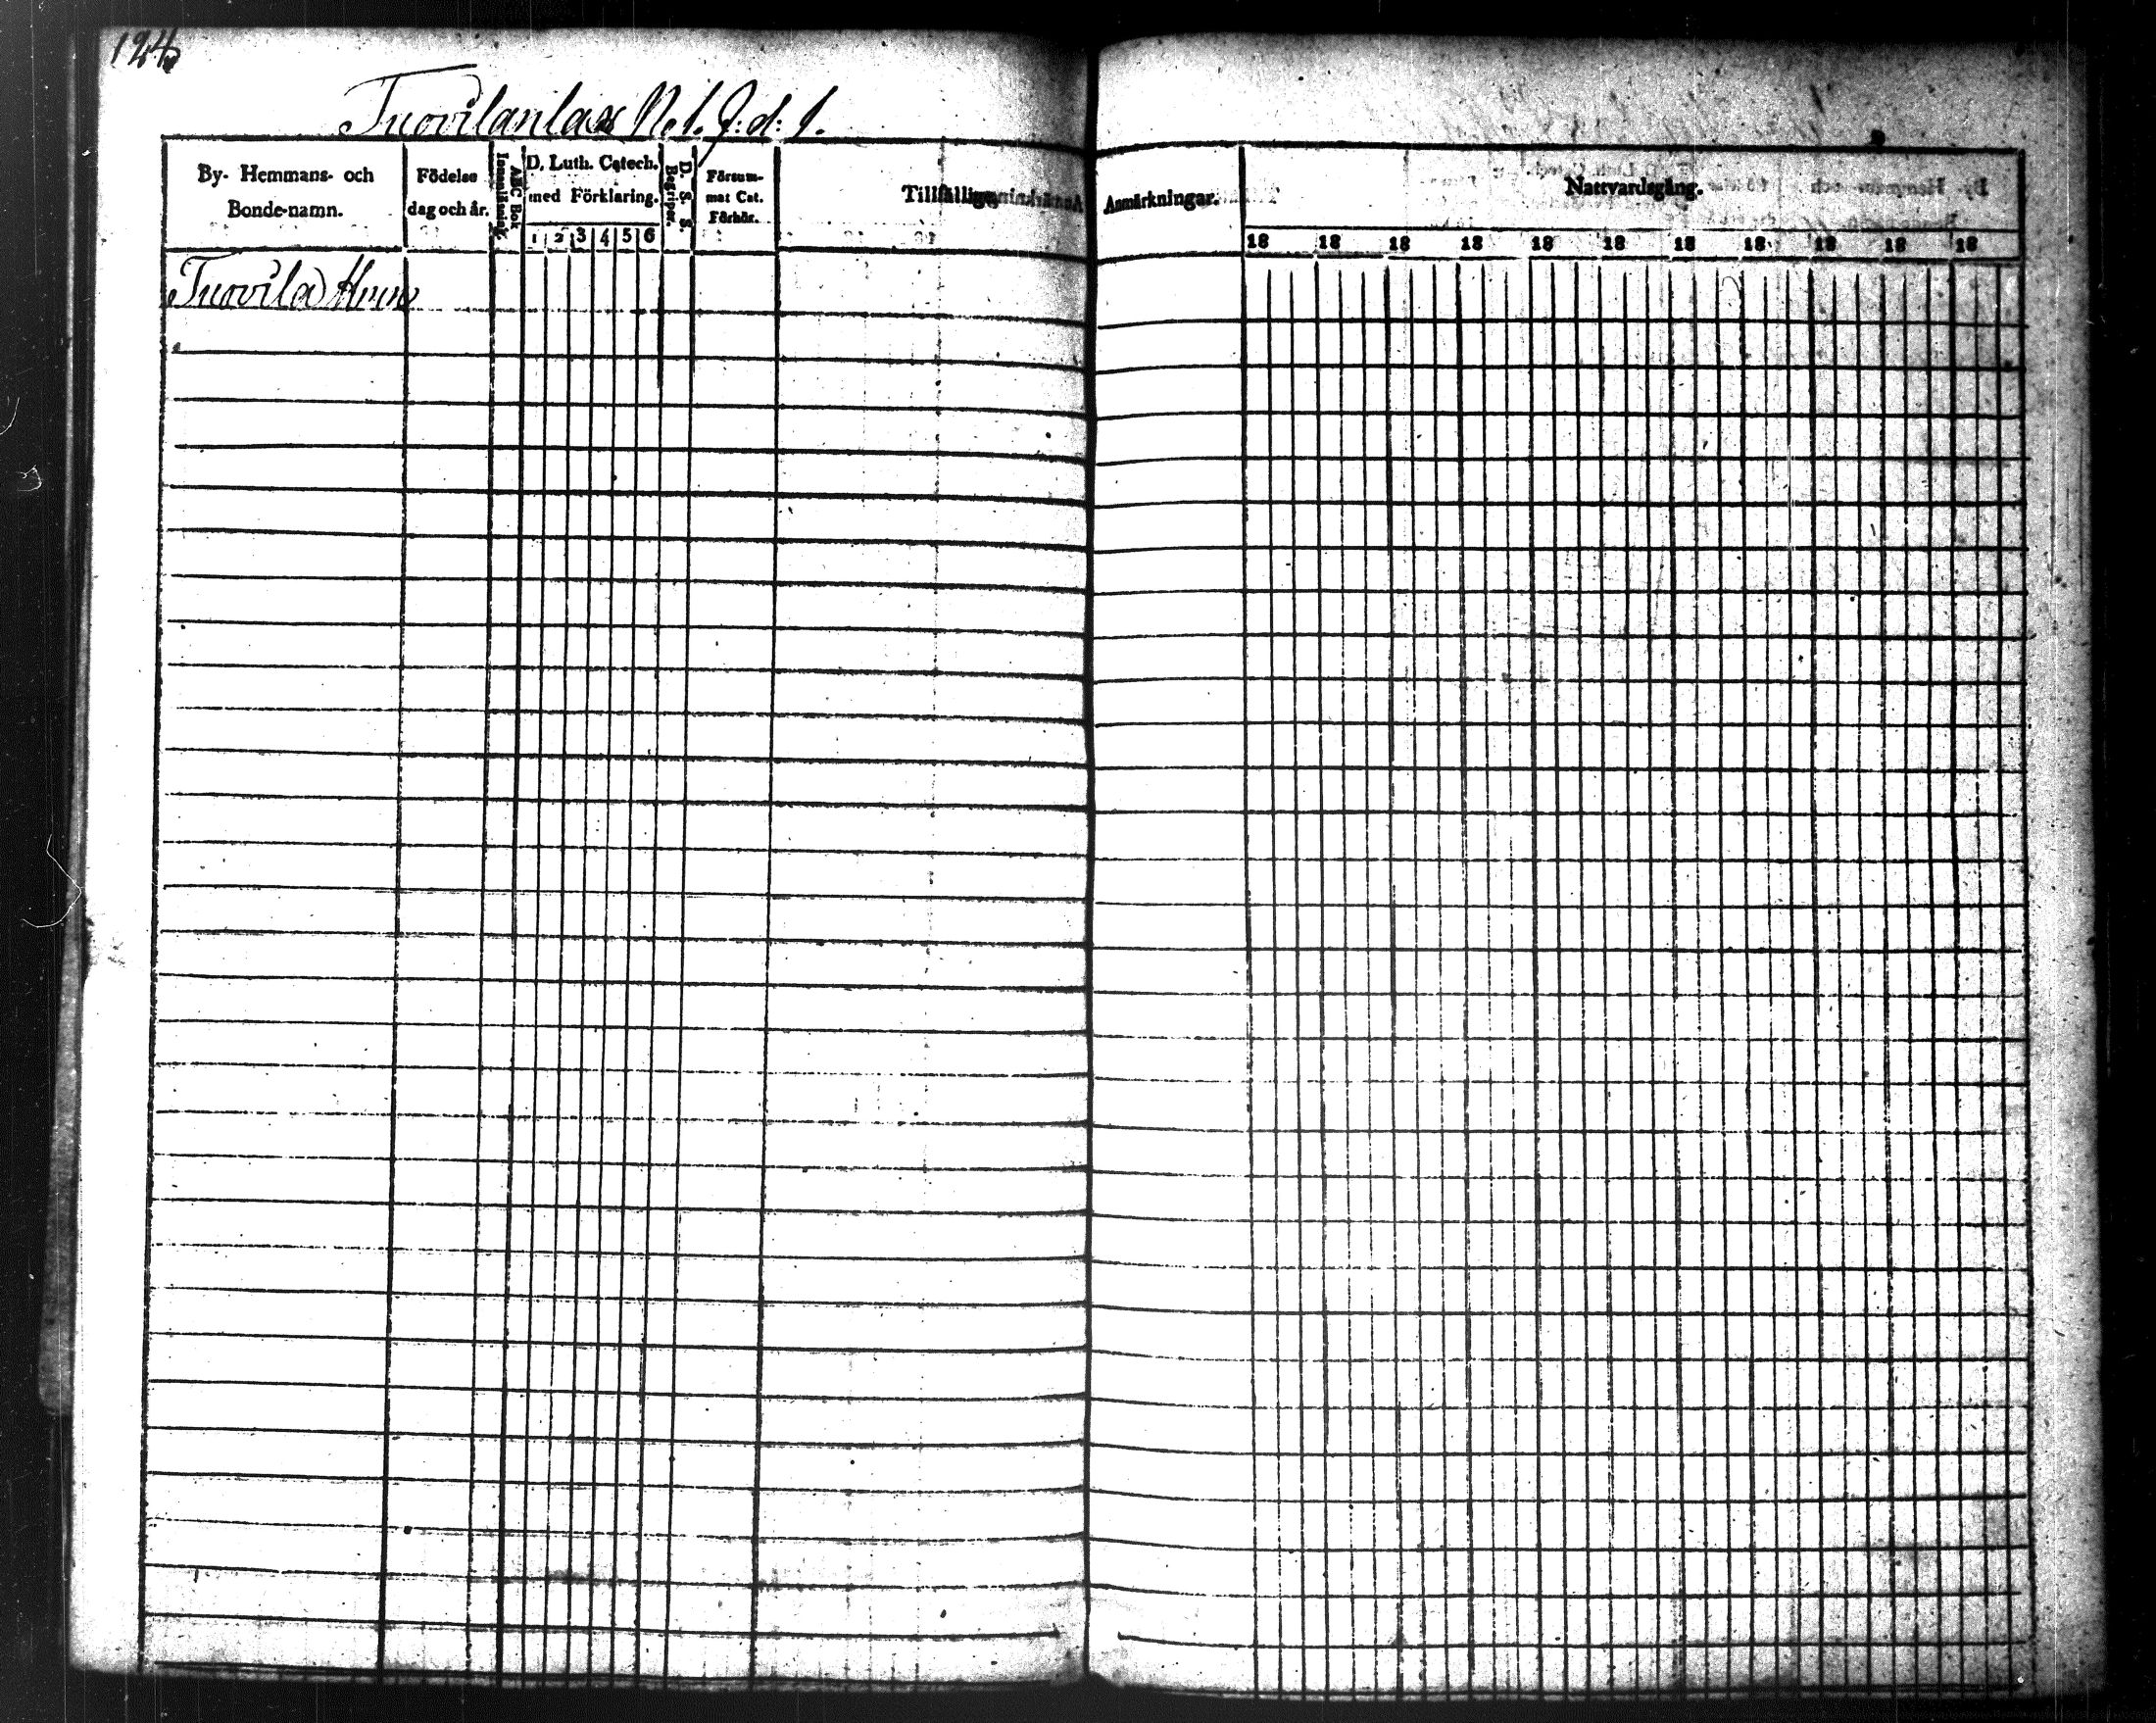 124
Tuovilanlax N. 1. J: d: 1.
By- Hemmans- och
Bonde-namn.
Födelse
dag och år.
ABC Bok
Innantill
D. Luth. Catech.
med Förklaring.
1 2 3 4 5 6
D. S. S.
Begriper.
Försum-
mat Cat.
Förhör.
Tillfällige
Anmärkningar.
Nattvardsgång.
18 18 18 18 18 18 18 18 18 18 18
Tuovila Hem